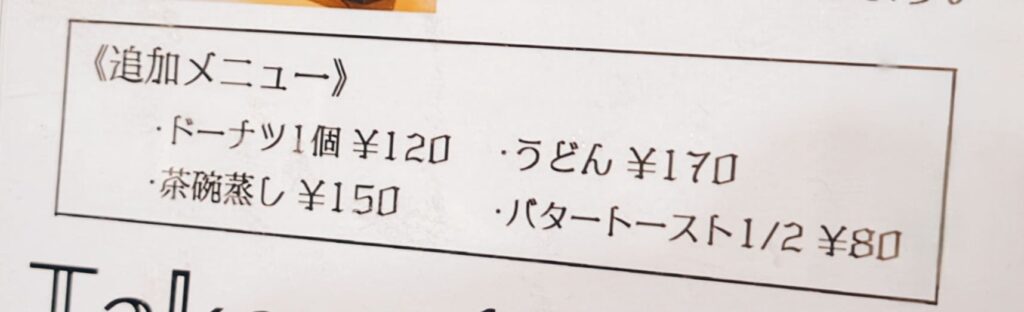 《追加メニュー》
・ドーナツ1個 ¥120
・うどん ¥170
・茶碗蒸し ¥150
・バタートースト1/2 ¥80